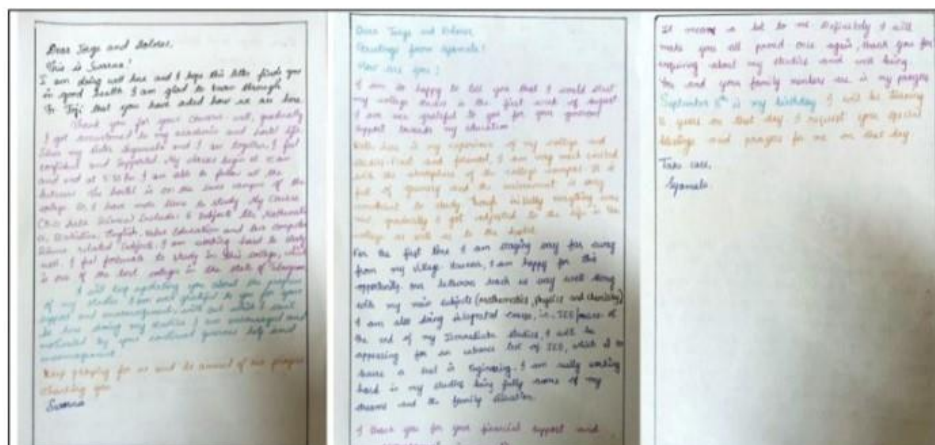 Dear Jorge and Dolores,
This is Swarna!
I am doing well here and I hope this letter finds you
in good health. I am glad to know through
Fr. Joji that you have asked how we are here.
Thank you for your concern. well, gradually
I got accustomed to my academic and hostel life.
Since my sister Syamala and I are together, I feel
confident and supported. My classes begin at
and end at 5:30 I am able to follow all the
lectures. The hostel is on the same campus of the
college so, I have more time to study. My course
Data Science) includes 6 subjects like, Mathematics
Statistics, English, Value Education and two computer
science related subjects. I am working hard to study
well. I feel fortunate to study in this college, which
is one of the best colleges in the state of Telangana.
I will keep updating you about the progress
of my studies. I am very grateful to you for your
support and encouragement, with out which I can't
be here doing my studies. I am encouraged and
motivated by your continued generous help and
encouragement.
Keep praying for us and be assured of our prayers
Thanking you
Swarna
Dear Jorge and Dolores,
Greetings from Syamala!
How are you?
I am so happy to tell you that I could start
my college studies in the first week of august
I am ever grateful to you for your generous
support towards my education.
Well, here is my experience of my college and
I am very much excited
with the atmosphere of the college campus. It is
full of greenery and the environment is very
conducive to study. Though initially everything was
new gradually I got adjusted to the life in the
college as well as to the hostel.
For the first time I am staying very far away
from my village. However, I am happy for this
opportunity. Our lecturers teach us very well. Along
with my main subjects (mathematics, physics and chemistry)
I am also doing integrated course, i.e., JEE/mains. At
the end of my Intermediate studies, I will be
appearing for an entrance test of JEE, which is to
secure a seat in Engineering. I am really working
hard in my studies being fully aware of my
dreams and the family situation.
I thank you for your financial support and
It means a lot to me. Definitely I will
make you all proud. once again, thank you for
enquiring about my studies and well being.
You and your family members are in my prayers
September 8th is my birthday. I will be turning
years on that day. I request your special
blessings and prayers for me on that day
Take care,
Syamala.